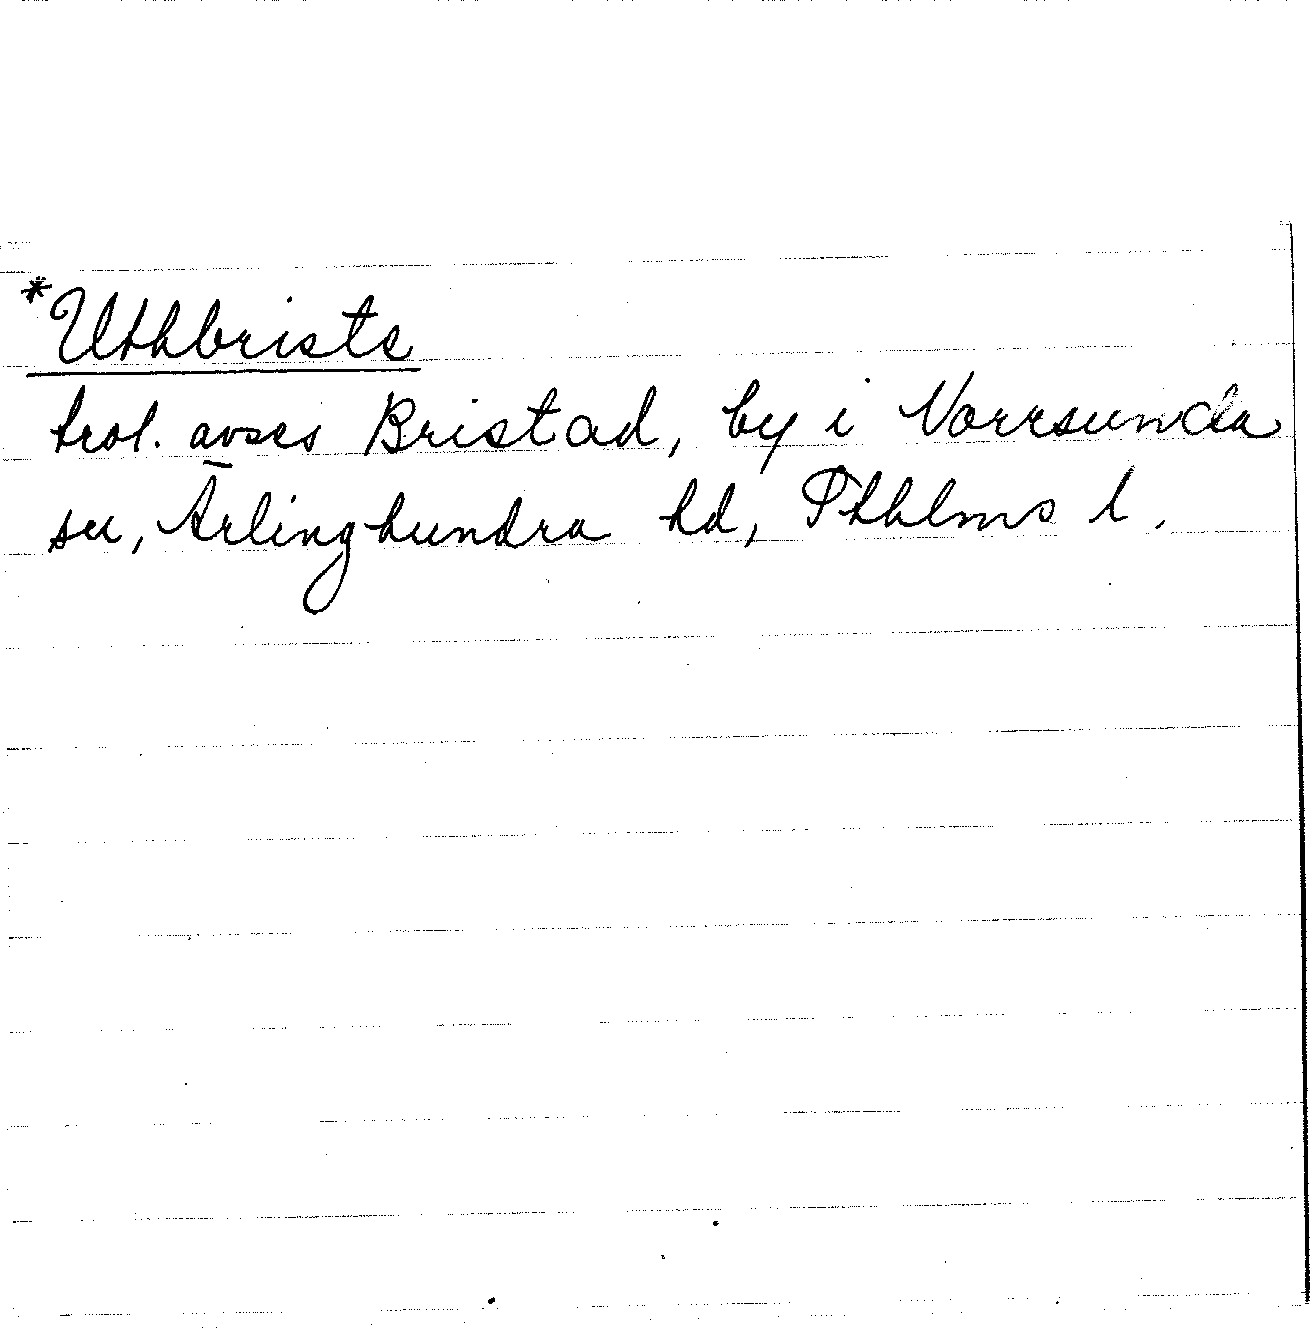 *Uthbriste
trol. avses Bristad, by i Norrsunda
sn, Ärlinghundra hd, Sthlms l.